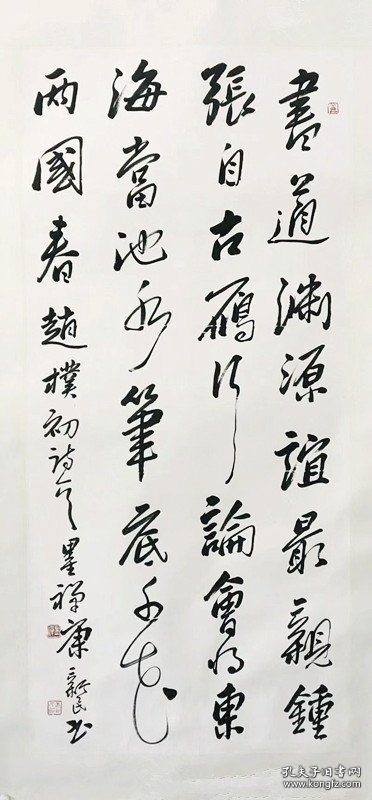 書道淵源誼最親鍾
張自古雁行論會將東
海當池水筆底千花
兩國春趙樸初詩一首墨禪康新民书
孔夫子旧书网
kongfz.com